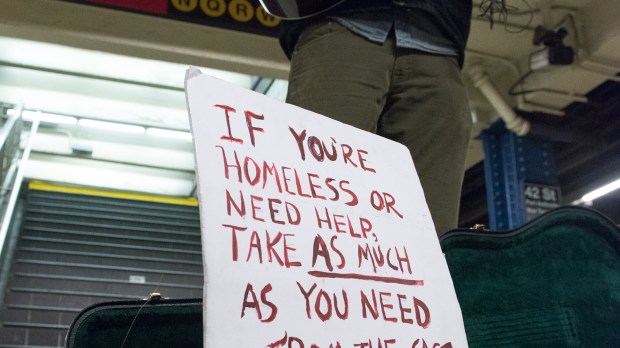 NQRW
IF YOU'RE
HOMELESS OR
NEED HELP,
TAKE AS MUCH
AS YOU NEED.
FROM THE
42 ST